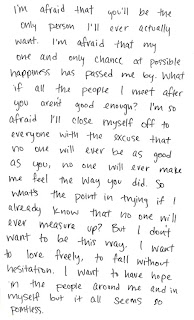 I'm afraid that you'll be the
only person I'll ever actually
want. I'm afraid that my
one and only chance at possible
happiness has passed me by. What
if all the people I meet after
you aren't good enough? I'm so
afraid I'll close myself off to
everyone with the excuse that
no one will ever be as good
as you, no one will ever make
me feel the way you did. So
what's the point in trying if I
already know that no one will
ever measure up? But I don't
want to be this way. I want
to love freely, to fall without
hesitation. I want to have hope
in the people around me and in
myself but it all seems so
pointless.